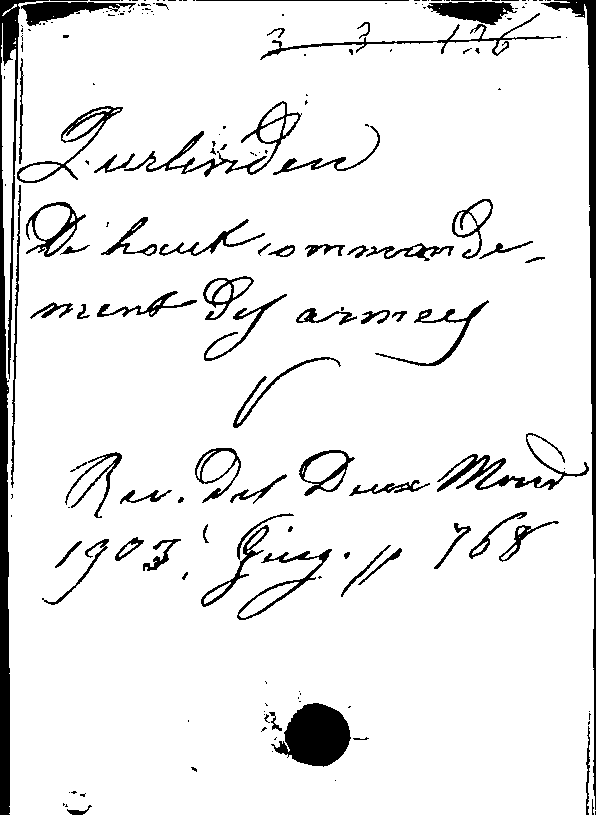 3 3 126
Zurlinden
De haut commande-
ment des armees
Rev. des Deux Mond
1903, Giug. p 768